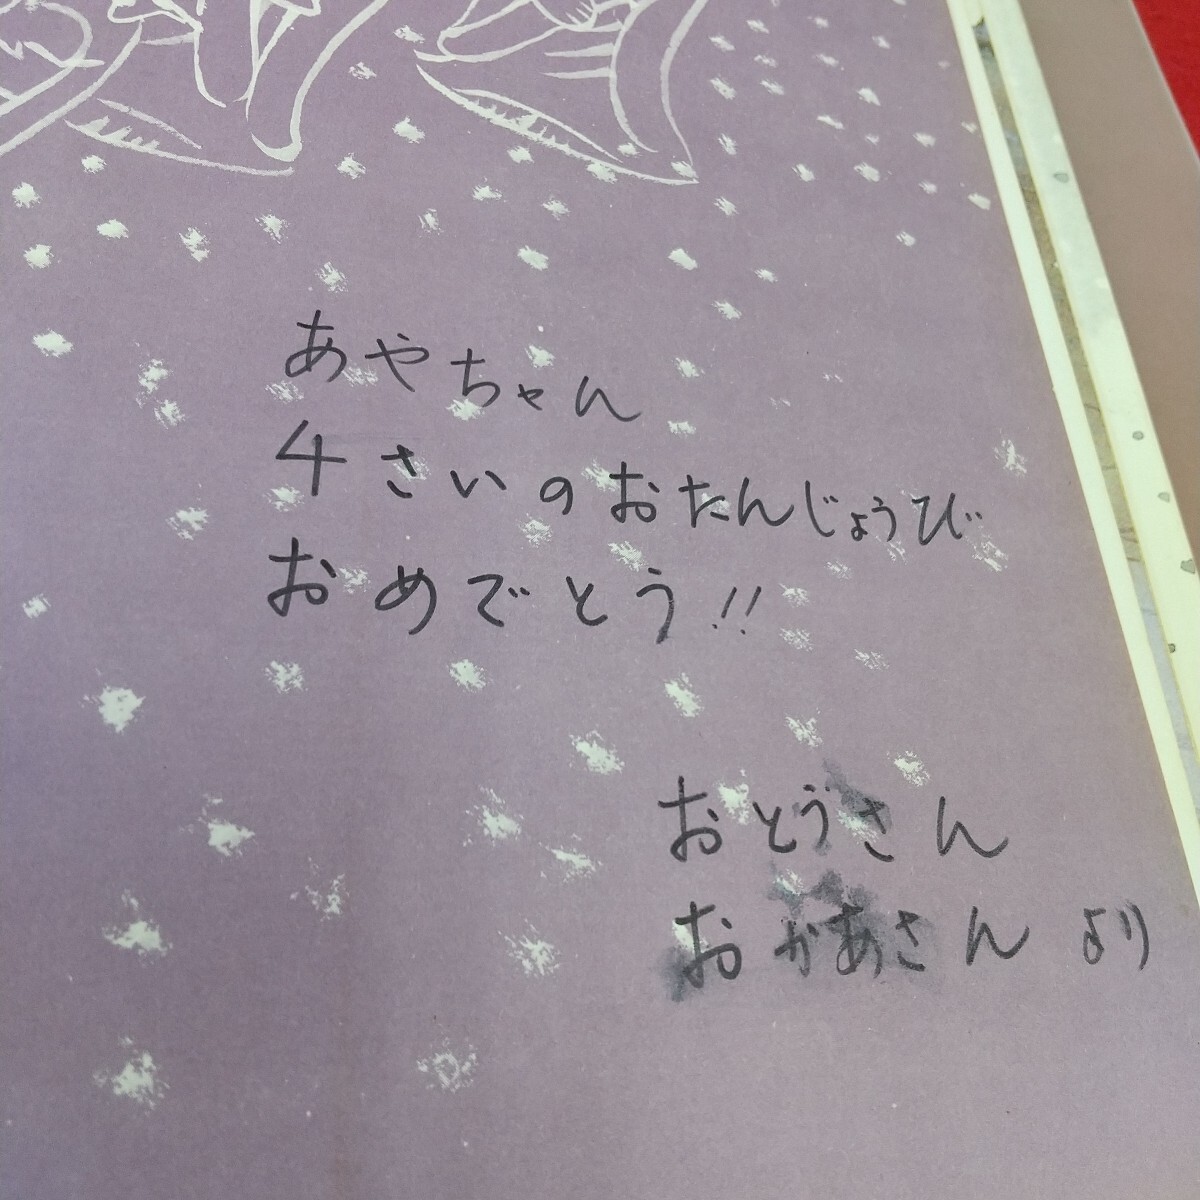 あやちゃん
4さいのおたんじょうび
おめでとう!!
おとうさん
おかあさんより